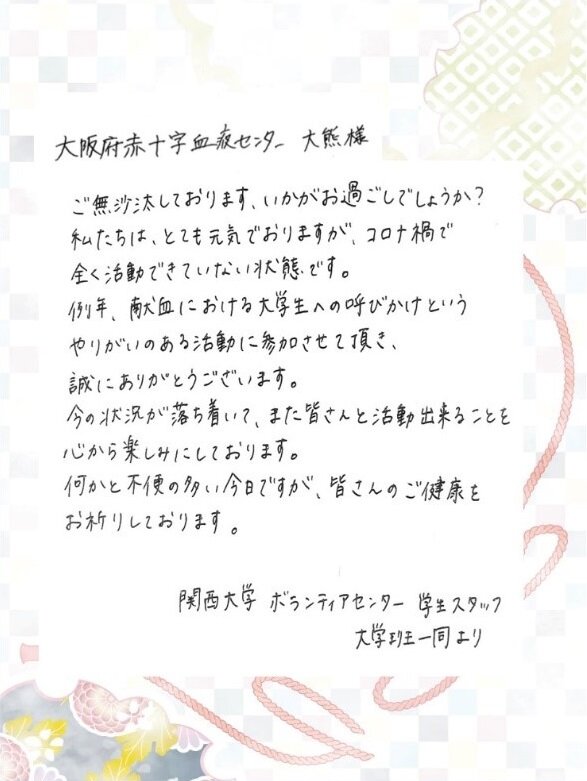 大阪府赤十字血液センター 大熊様
ご無沙汰しております、いかがお過ごしでしょうか?
私たちは、とても元気でおりますが、コロナ禍で
全く活動できていない状態です。
例年、献血における大学生への呼びかけという
やりがいのある活動に参加させて頂き、
誠にありがとうございます。
今の状況が落ち着いて、また皆さんと活動出来ることを
心から楽しみにしております。
何かと不便の多い今日ですが、皆さんのご健康を
お祈りしております。
関西大学 ボランティアセンター 学生スタッフ
大学班一同より